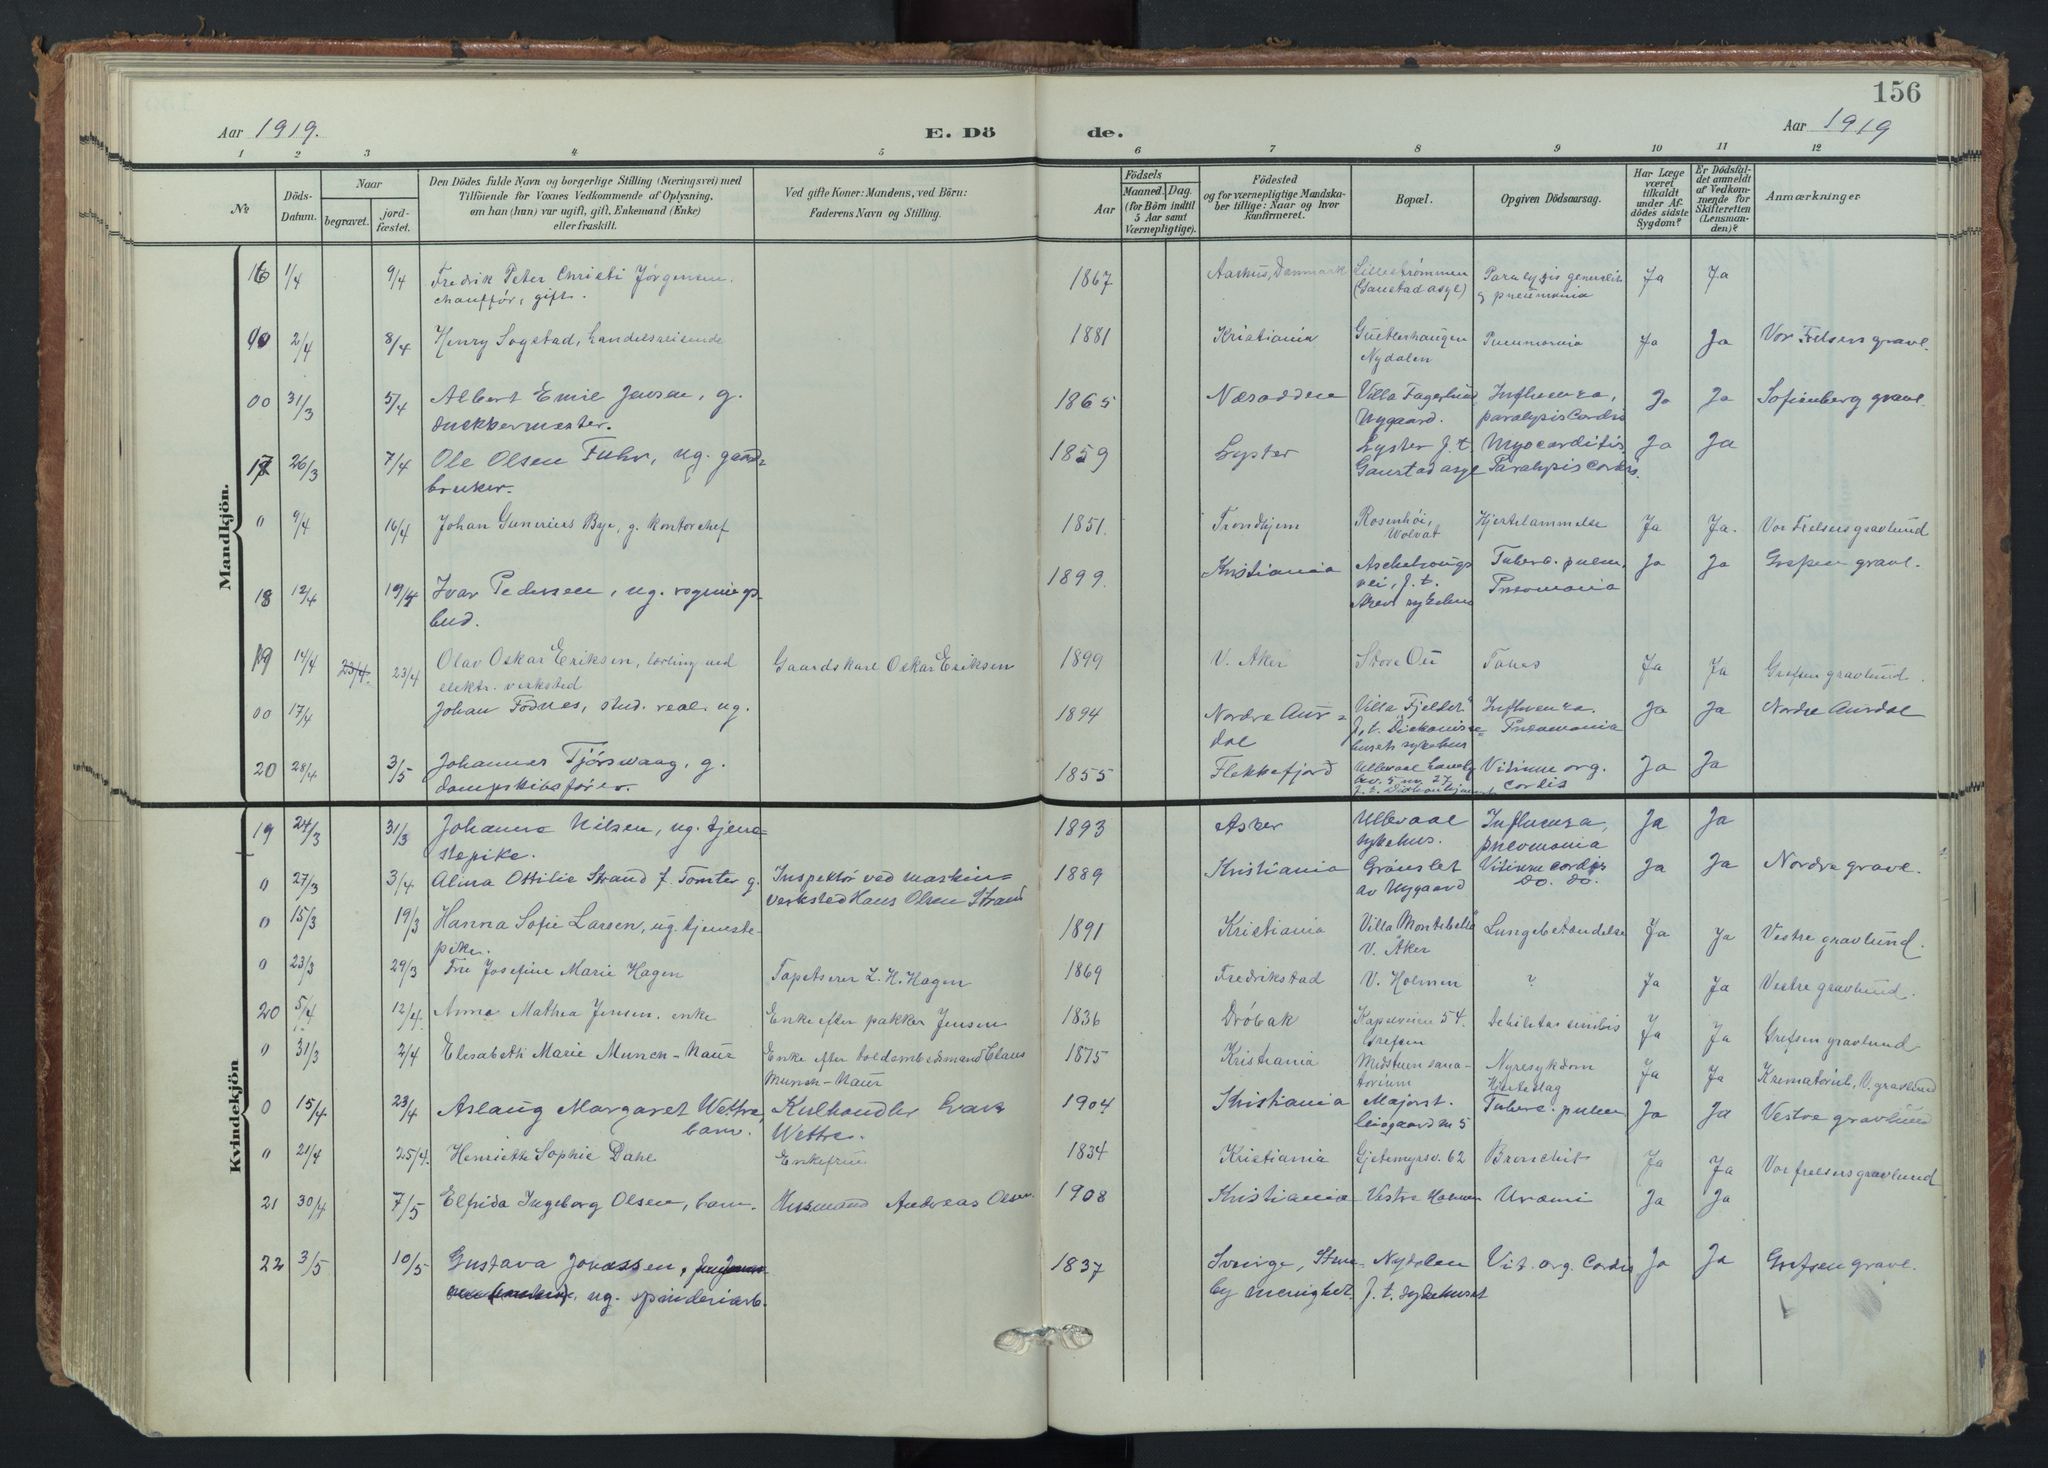 156
Aar 1919.
E. Dö
de.
Aar 1919
1 2 3 4 5 6 7 8 9 10 11 12
№
Döds-
Datum.
Naar
begravet.
jord-
fæstet.
Den Dödes fulde Navn og borgerlige Stilling (Næringsvei) med
Tilföiende for Voxnes Vedkommende af Oplysning,
om han (hun) var ugift, gift, Enkemand (Enke)
eller fraskilt.
Ved gifte Koner: Mandens, ved Börn:
Faderens Navn og Stilling.
Födsels
Aar
Maaned. Dag.
(for Börn indtil
5 Aar samt
Værnepligtige).
Födested
og for værnepligtige Mandska-
ber tillige: Naar og hvor
konfirmeret.
Bopæl.
Opgiven Dödsaarsag.
Har Læge
været
tilkaldt
under Af-
dödes sidste
Sygdom?
Er Dödsfal-
det anmeldt
af Vedkom-
mende for
Skifteretten
(Lensman-
den)?
Anmærkninger
Mandkjön.
16 1/4 9/4 Fredrik Peter Christi Jörgensen, 1867 Aarhus, Danmark Lillestrømmen Paralysis generalis Ja Ja
chauffør, gift. (Gaustad asyl) og pneumonia
00 2/4 8/4 Henry Sogstad, handelsreisende 1881 Kristiania Pneumonia Ja Ja Vor Frelsers gravl.
Nydalen
00 31/3 5/4 Albert Emil Jensen, g. 1865 Næsodden Villa Fagerlund Influenza, Ja Ja Sofienberg gravl.
snekkermester. Nygaard. paralysis Cordis
17 26/3 7/4 Ole Olsen Fuhr, ug. gaard- 1859 Lyster Lyster f. t. Myocarditis Ja Ja
bruker. Gaustad asyl Paralysis cordis.
0 9/4 16/4 Johan Gunerius Bye, g. kontorchef 1851. Trondhjem Rosenhöi, Hjertelammelse Ja Ja. Vor Frelsers gravlund
Volvat
18 12/4 19/4 Ivar Pedersen, ug. 1899. Kristiania Aschehougs Tuberc. pulm. Ja Ja Grefsen gravl.
bud. vei, f. t. Pneomonia
Akers sykehus
19 14/4 23/4. 23/4 Olav Oskar Eriksen, lærling ved Gaardskarl Oskar Eriksen 1899 V. Aker Store Ou Tabes Ja Ja Grefsen gravlund.
elektr. verksted
00 17/4 Johan Fodnes, stud. real. ug. 1894 Nordre Aur- Villa Fjeldet" Influenza. Ja Ja Nordre Aurdal
dal f. t. Diakonisse- Pneomonia
husets sykehus
20 28/4 3/5 Johannes Tjörswaag, g. 1855 Flekkefjord Ullevaal Vitium org. Ja Ja
dampskibsfører. cordis
Kvindekjön
19 24/3 31/3 Johanne Nilsen, ug. tjene- 1893 Asker Ullevaal Influenza, Ja Ja
stepike. sykehus. pneomonia
0 27/3 3/4 Alma Ottilie Strand f. Tomter g. Inspektør ved maskin- 1889 Kristiania Grönslet Vitium cordis Ja Ja Nordre gravl.
verksted Hans Olsen Strand av Nygaard do. do.
0 15/3 19/3 Hanna Sofie Larsen, ug. tjeneste- 1891 Kristiania Villa Montebello" Lungebetændelse Ja Ja Vestre gravlund.
pike. V. Aker
0 23/3 29/3 Fru Josefine Marie Hagen Tapetserer L. H. Hagen 1869 Fredrikstad V. Holmen ? Ja Ja Vestre gravlund.
20 5/4 12/4. Anna Mathea Jensen, enke Enke efter pakker Jensen 1836 Dröbak Kapelveien 54. Debilitas senilis Ja Ja Grefsen gravlund
Grefsen
0 31/3 2/4 Elisabeth Marie Munch-Naur Enke efter toldembedsmand Claus 1875 Kristiania Midstuen sana- Nyresykdom Ja Ja Krematoriet, V. gravlund
Munch-Naur torium Hjerteslag
0 15/4 23/4 Aslaug Margaret Wettre, Kulhandler Wettre. 1904 Kristiania Majorst. Tuberc. pulm Ja Ja Vestre gravlund
barn.
0 21/4 25/4. Henriette Sophie Dahl Enkefrue 1834 Kristiania Gjetemyrsv. 62 Bronchit Ja Ja Vor frelsers gravlund
21 30/4 7/5 Elfrida Ingeborg Olsen, barn. Husmand Andreas Olsen 1908 Kristiania Vestre Holmen Uræmi Ja Ja
22 3/5 10/5 Gustava Jonassen, 1837 Sverige, Nydalen Vit. org. Cordis Ja Ja Grefsen gravl.
ug. spinderiarb. by menighet. f. t. sykehuset